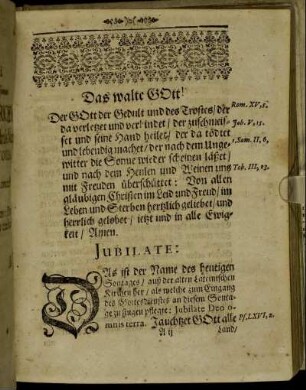 Das walte GOtt!
Der GOtt der Gedult und des Trostes/ der
da verletzet und verbindet/ der zuschmeis-
set und seine Hand heilet/ der da tödtet
und lebendig machet/ der nach dem Unge-
witter die Sonne wieder scheinen lässet/
und nach dem Heulen und Weinen uns
mit Freuden überschüttet: Von allen
gläubigen Christen im Leid und Freud/ im
Leben und Sterben hertzlich geliebet/ und
herrlich gelobet/ ietzt und in alle Ewig-
keit/ Amen.
Rom. XV, 5.
Job. V, 18.
1. Sam. II, 6.
Tob. III, 23.
JUBILATE:
DAs ist der Name des heutigen
Sontages/ auß der alten Lateinischen
Kirchen her/ als welche zum Eingang
des Gottesdienstes an diesem Sonta-
ge zu singen pflegte: Jubilate Deo o-
mnis terra. Jauchtzet GOtt alle
Ps. LXVI, 2.
A ij
Land/